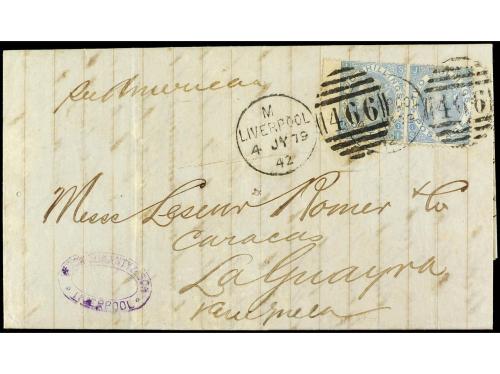 per America
M
LIVERPOOL
4 JY 79
42
466
466
Mess Leseur Romer & Co
Caracas
La Guayra
Venezuela
LIVERPOOL